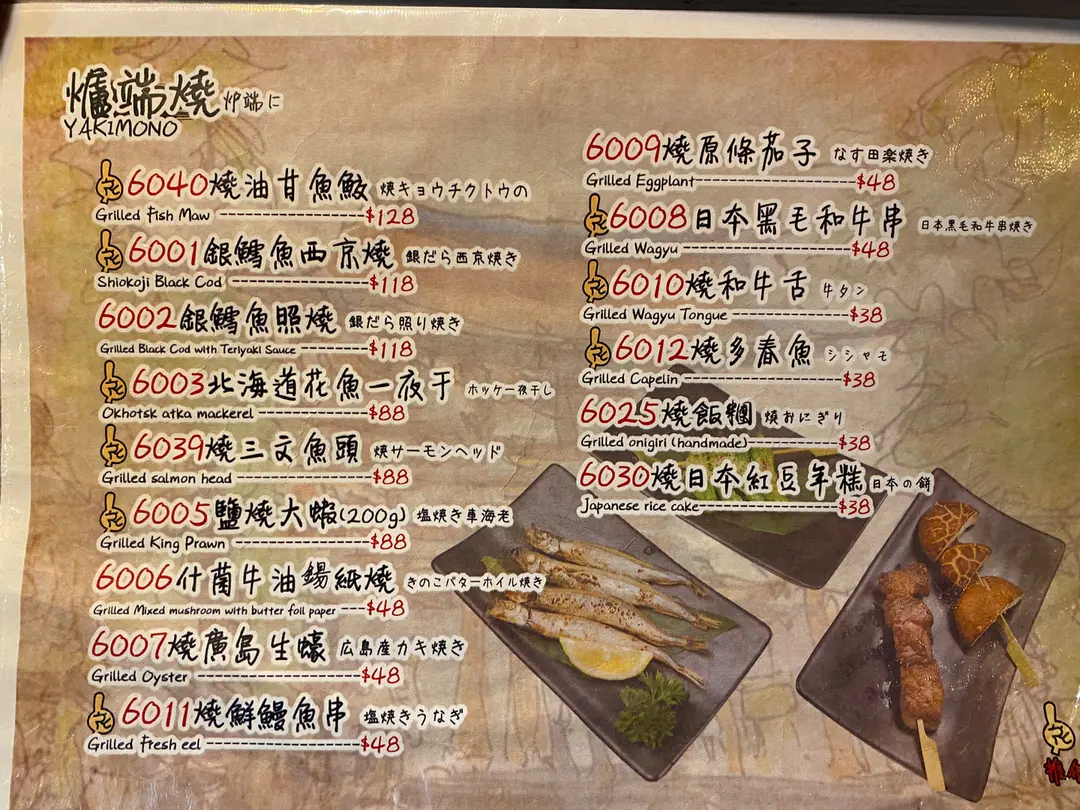 爐端燒 炉端に
YAKIMONO
6040燒油甘魚鮫 焼キョウチクトウの
Grilled Fish Maw ----------------$128
6001銀鱈魚西京燒 銀だら西京焼き
Shiokoji Black Cod ----------------$118
6002銀鱈魚照燒 銀だら照り焼き
Grilled Black Cod with Teriyaki Sauce --------$118
6003北海道花魚一夜干 ホッケ一夜干し
Okhotsk atka mackerel ------------$88
6039燒三文魚頭 焼サーモンヘッド
Grilled salmon head ---------------$88
6005鹽燒大蝦(200g) 塩焼き車海老
Grilled King Prawn ----------------$88
6006什菌牛油錫紙燒 きのこバターホイル焼き
Grilled Mixed mushroom with butter foil paper ---$48
6007燒廣島生蠔 広島産カキ焼き
Grilled Oyster -------------------$48
6011燒鮮鰻魚串 塩焼きうなぎ
Grilled fresh eel ------------------$48
6009燒原條茄子 なす田楽焼き
Grilled Eggplant------------------$48
6008日本黑毛和牛串 日本黒毛和牛串焼き
Grilled Wagyu -------------------$48
6010燒和牛舌 牛タン
Grilled Wagyu Tongue --------------$38
6012燒多春魚 シシャモ
Grilled Capelin -------------------$38
6025燒飯糰 焼おにぎり
Grilled onigiri (handmade)------------$38
6030燒日本紅豆年糕 日本の餅
Japanese rice cake-----------------$38